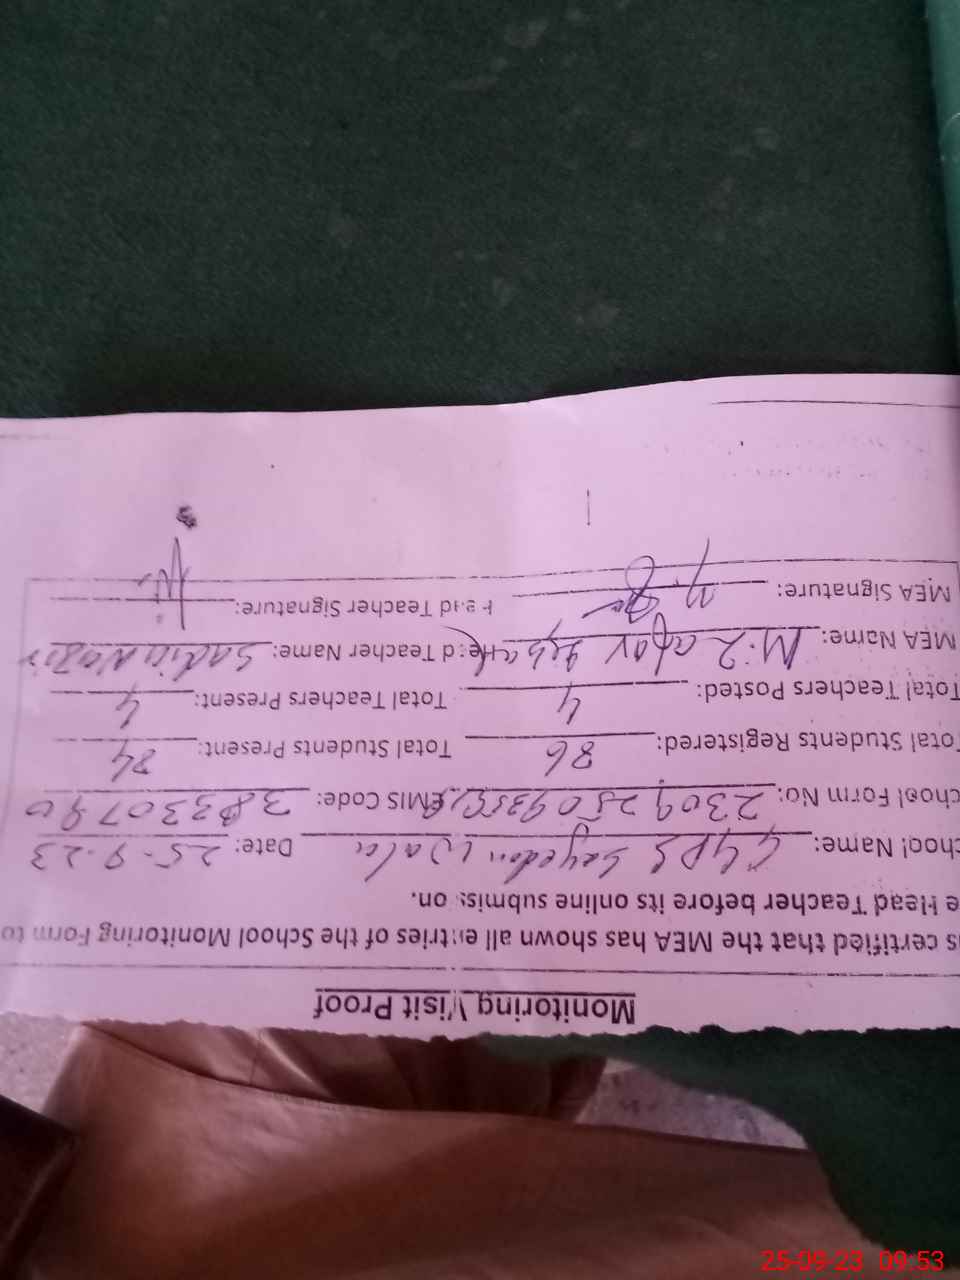 Monitoring Visit Proof
is certified that the MEA has shown all entries of the School Monitoring Form to
e Head Teacher before its online submission.
chool Name: GGPS Sayedan Wala Date: 25-9-23
chool Form No: EMIS Code: 38330790
Total Students Registered: 86 Total Students Present: 84
Total Teachers Posted: 4 Total Teachers Present: 4
MEA Name: M. Zafar Head Teacher Name: Sadia Nazir
MEA Signature: Head Teacher Signature:
25-09-23 09:53